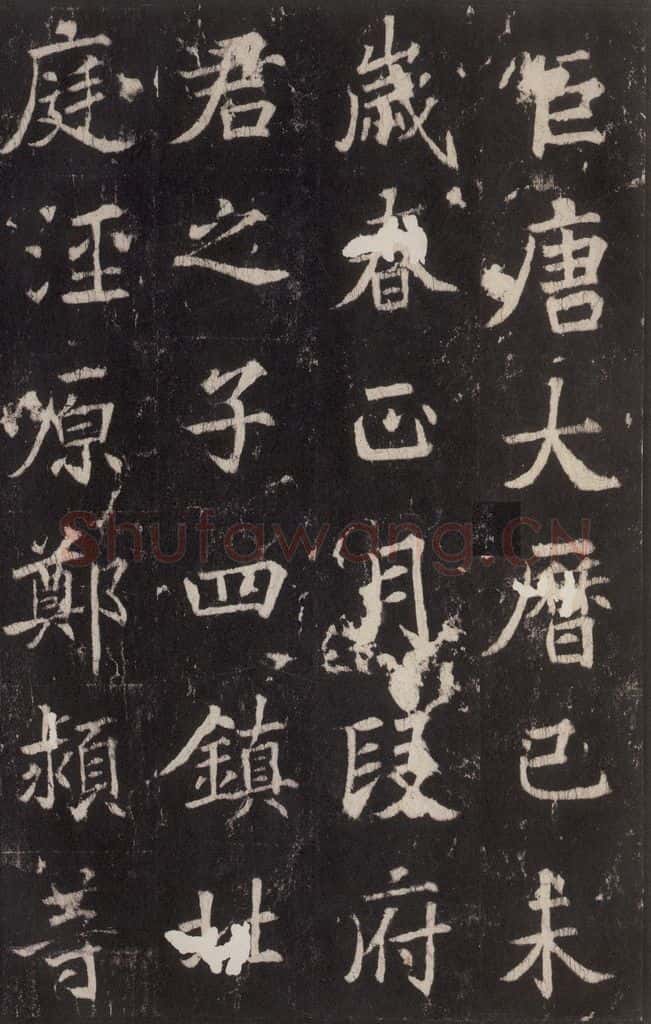 巨唐大曆己未
歲春正月段府
君之子四鎮北
庭涇原鄭潁等
Shufawang.CN